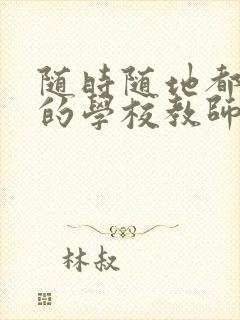 随時随地都
的學校教師
林叔